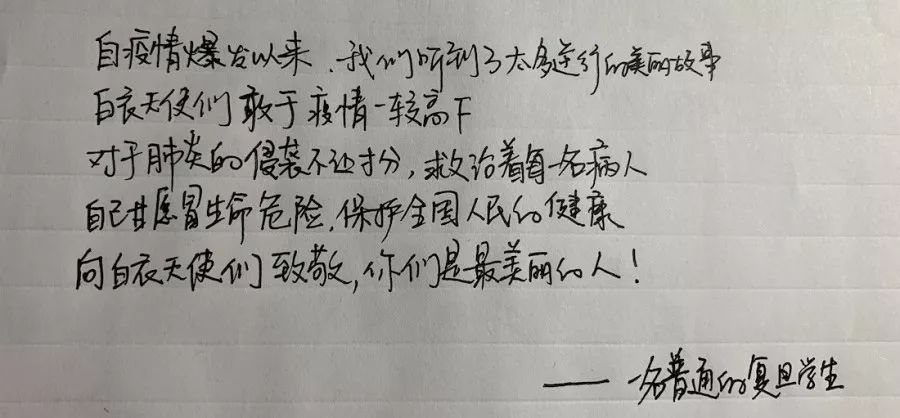 自疫情爆发以来,我们听到了太多逆行的美丽故事
白衣天使们敢于疫情一较高下
对于肺炎的侵袭不让寸分,救治着每一名病人
自己甘愿冒生命危险,保护全国人民的健康
向白衣天使们致敬,你们是最美丽的人!
—— 一名普通的复旦学生